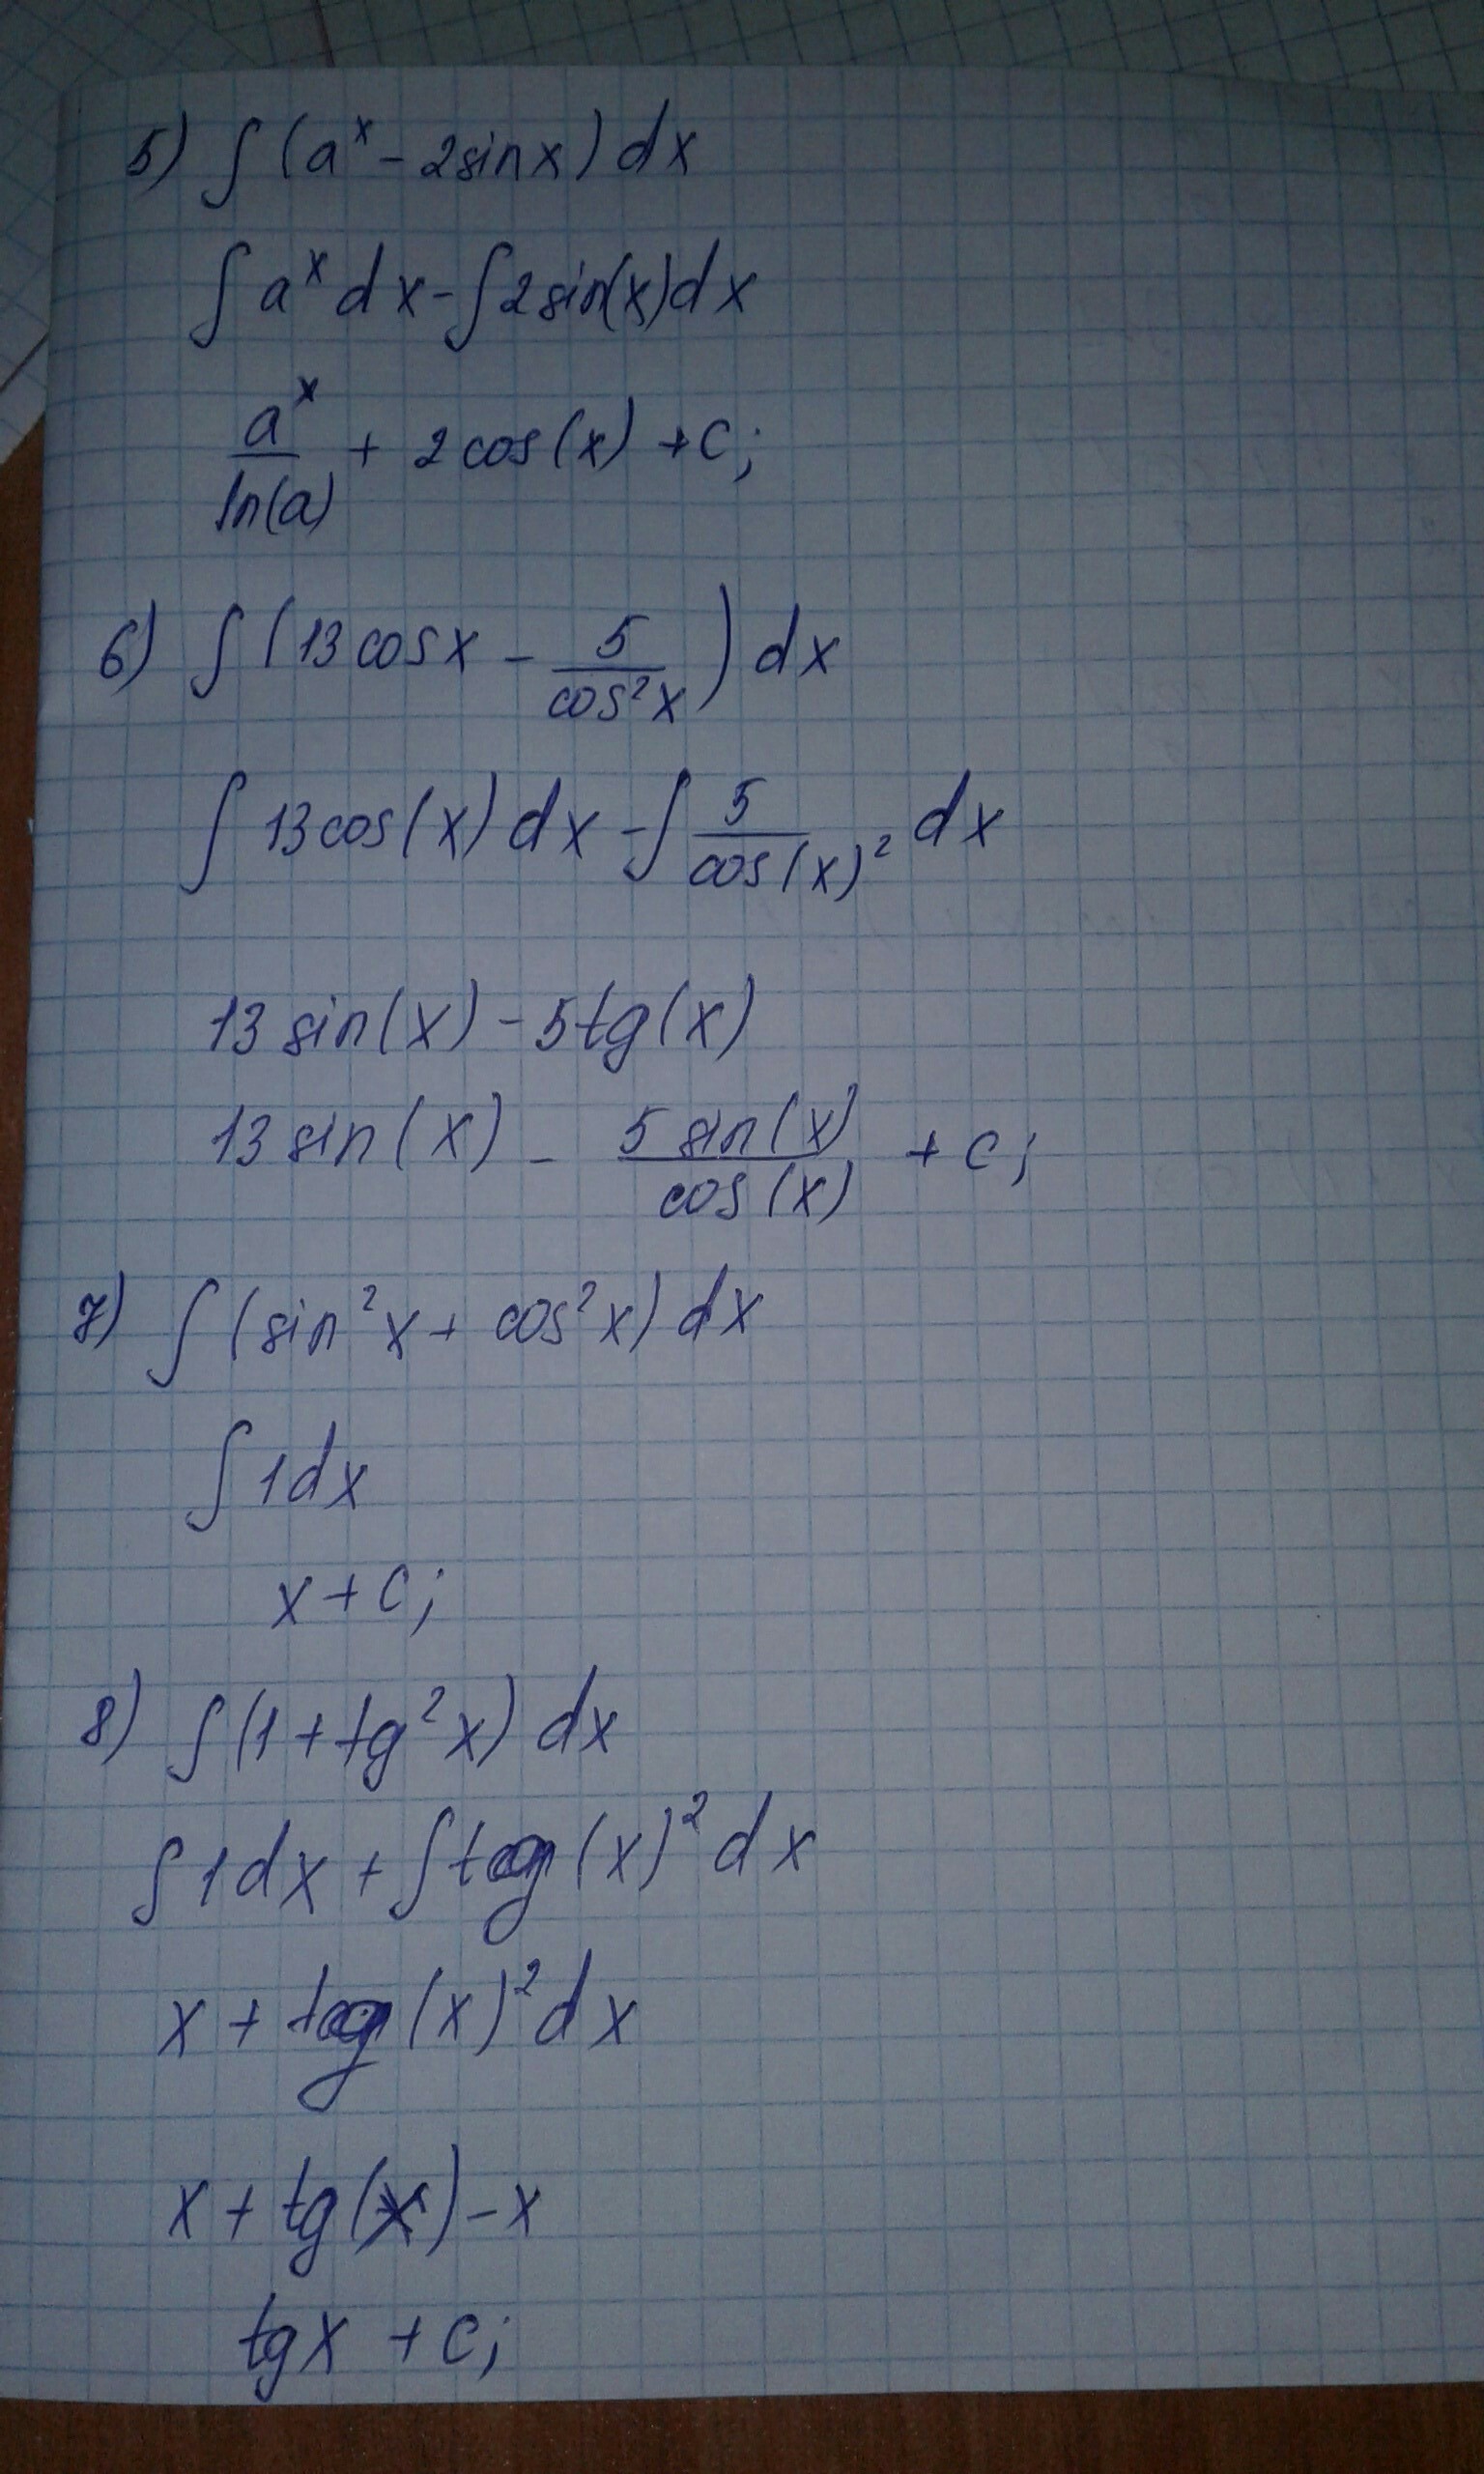 5) ∫(aˣ - 2sinx) dx
∫aˣdx - ∫2sin(x)dx
aˣ/ln(a) + 2cos(x) + c;
6) ∫(13cosx - 5/cos²x) dx
∫13cos(x)dx - ∫5/cos(x)² dx
13 sin(x) - 5tg(x)
13 sin(x) - 5sin(x)/cos(x) + c;
7) ∫(sin²x + cos²x) dx
∫1dx
x + c;
8) ∫(1 + tg²x) dx
∫1dx + ∫tg(x)²dx
x + tg(x)²dx
x + tg(x) - x
tgx + c;